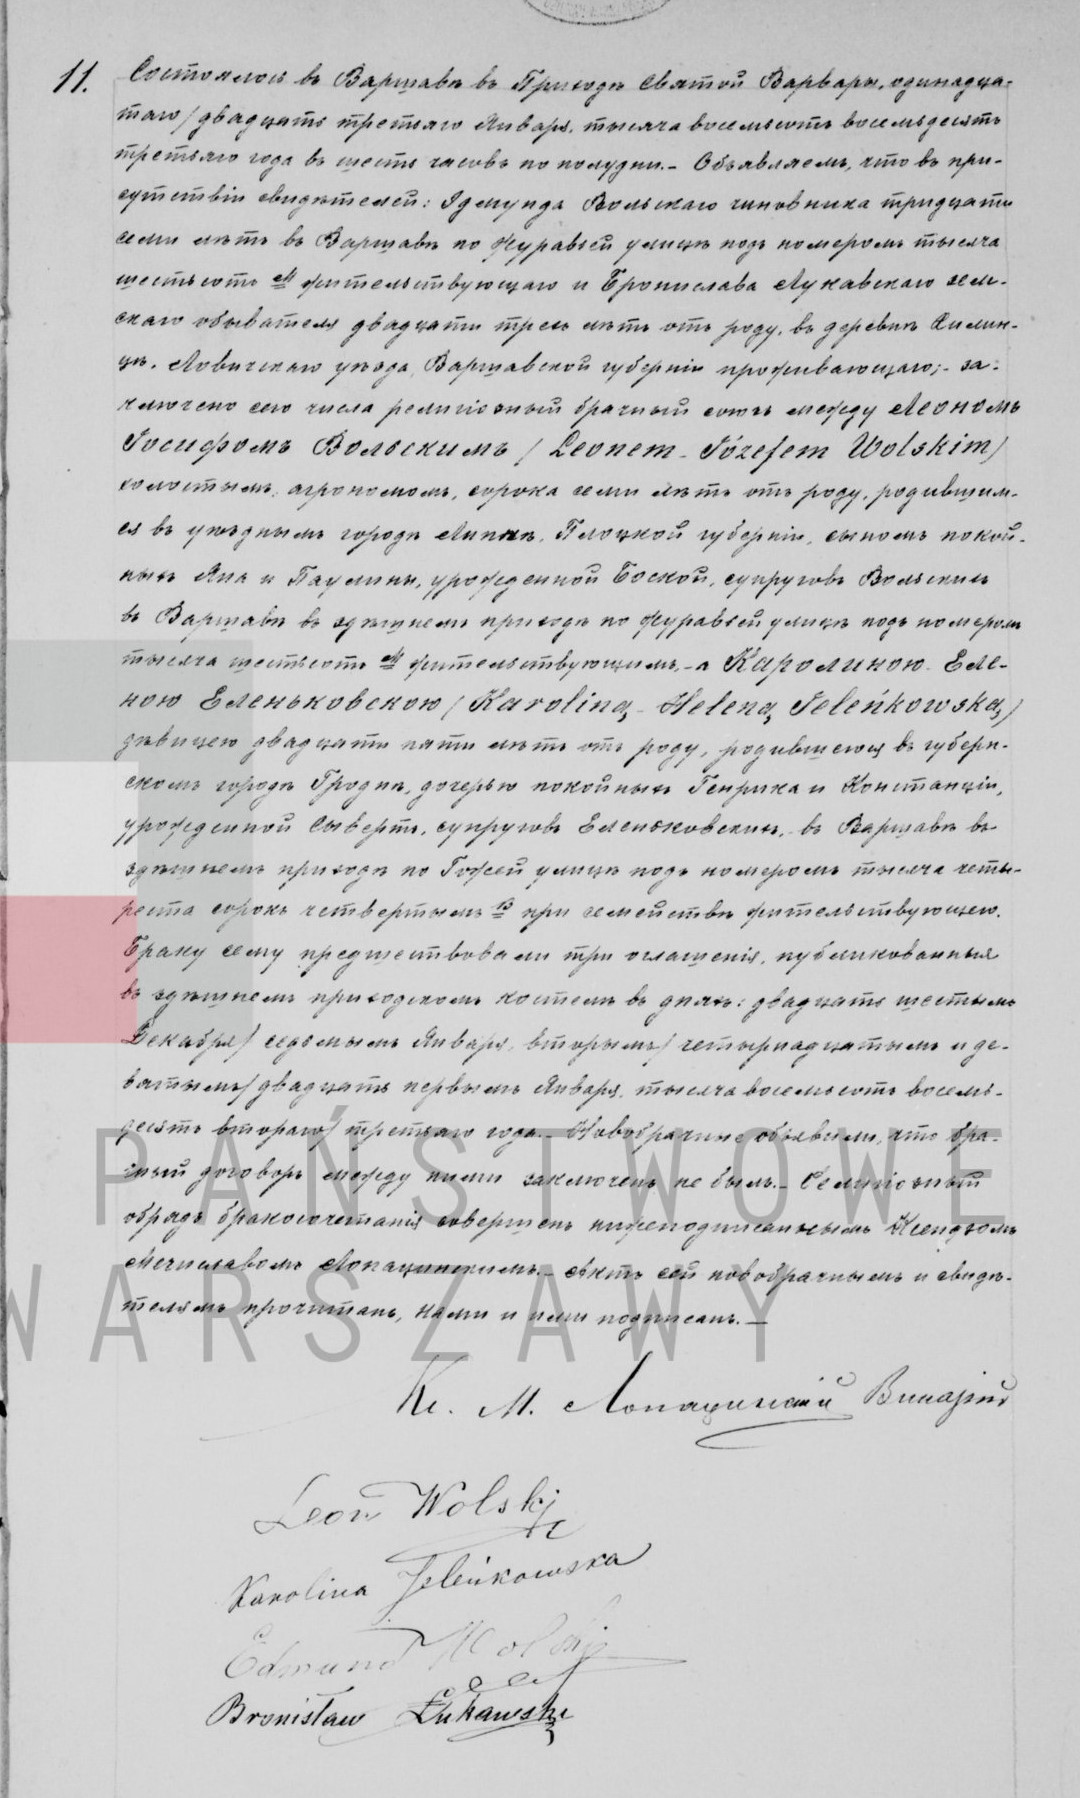 11. Состоялось въ Варшавѣ въ Приходѣ Святой Варвары, одинадца-
таго/двадцать третьяго Января, тысяча восемьсотъ восемьдесятъ
третьяго года въ шесть часовъ по полудни.- Объявляемъ, что въ при-
сутствіи свидѣтелей: Эдмунда Вольскаго чиновника тридцати
семи лѣтъ въ Варшавѣ по Журавьей улицѣ подъ номеромъ тысяча
шестьсотъ жительствующаго и Бронислава Лукавскаго зем-
скаго обывателя двадцати трехъ лѣтъ отъ роду, въ деревнѣ
Ловичскаго уѣзда, Варшавской губерніи проживающаго;- за-
ключено сего числа религіозный брачный союзъ между Леономъ
Іосифомъ Вольскимъ / Leonem - Józefem Wolskim/
холостымъ, агрономомъ, сорока семи лѣтъ отъ роду, родившим-
ся въ уѣздномъ городѣ Липнѣ, Плоцкой губерніи, сыномъ покой-
ныхъ Яна и Паулины, урожденной Боской, супруговъ Вольскихъ
въ Варшавѣ въ здѣшнемъ приходѣ по Журавьей улицѣ подъ номеромъ
тысяча шестьсотъ жительствующимъ,- а Каролиною - Еле-
ною Еленьковскою / Karoliną - Heleną Jeleńkowską/
дѣвицею двадцати пяти лѣтъ отъ роду, родившеюся въ губерн-
скомъ городѣ Гроднѣ, дочерью покойныхъ Генрика и Констанціи,
урожденной Сывертъ, супруговъ Еленьковскихъ,- въ Варшавѣ въ
здѣшнемъ приходѣ по Гожей улицѣ подъ номеромъ тысяча четы-
реста сорокъ четвертымъ при семействѣ жительствующею.
Браку сему предшествовали три оглашенія, публикованныя
въ здѣшнемъ приходскомъ костелѣ въ дняхъ: двадцать шестымъ
Декабря/ седьмымъ Января, вторымъ/ четырнадцатымъ и де-
вятымъ/ двадцать первымъ Января, тысяча восемьсотъ восемь-
десятъ втораго/ третьяго года.- Новобрачные объявили, что бра-
чный договоръ между ними заключенъ не былъ.- Религіозный
обрядъ бракосочетанія совершенъ нижеподписаннымъ Ксендзомъ
Мечиславомъ Лопацинскимъ.- Актъ сей новобрачнымъ и свидѣ-
телямъ прочитанъ, нами и ими подписанъ.-
Кс. М. Лопацинскій Викарій
Leon Wolski
Karolina Jeleńkowska
Edmund Wolski
Bronisław Łukawski
PAŃSTWOWE
WARSZAWY